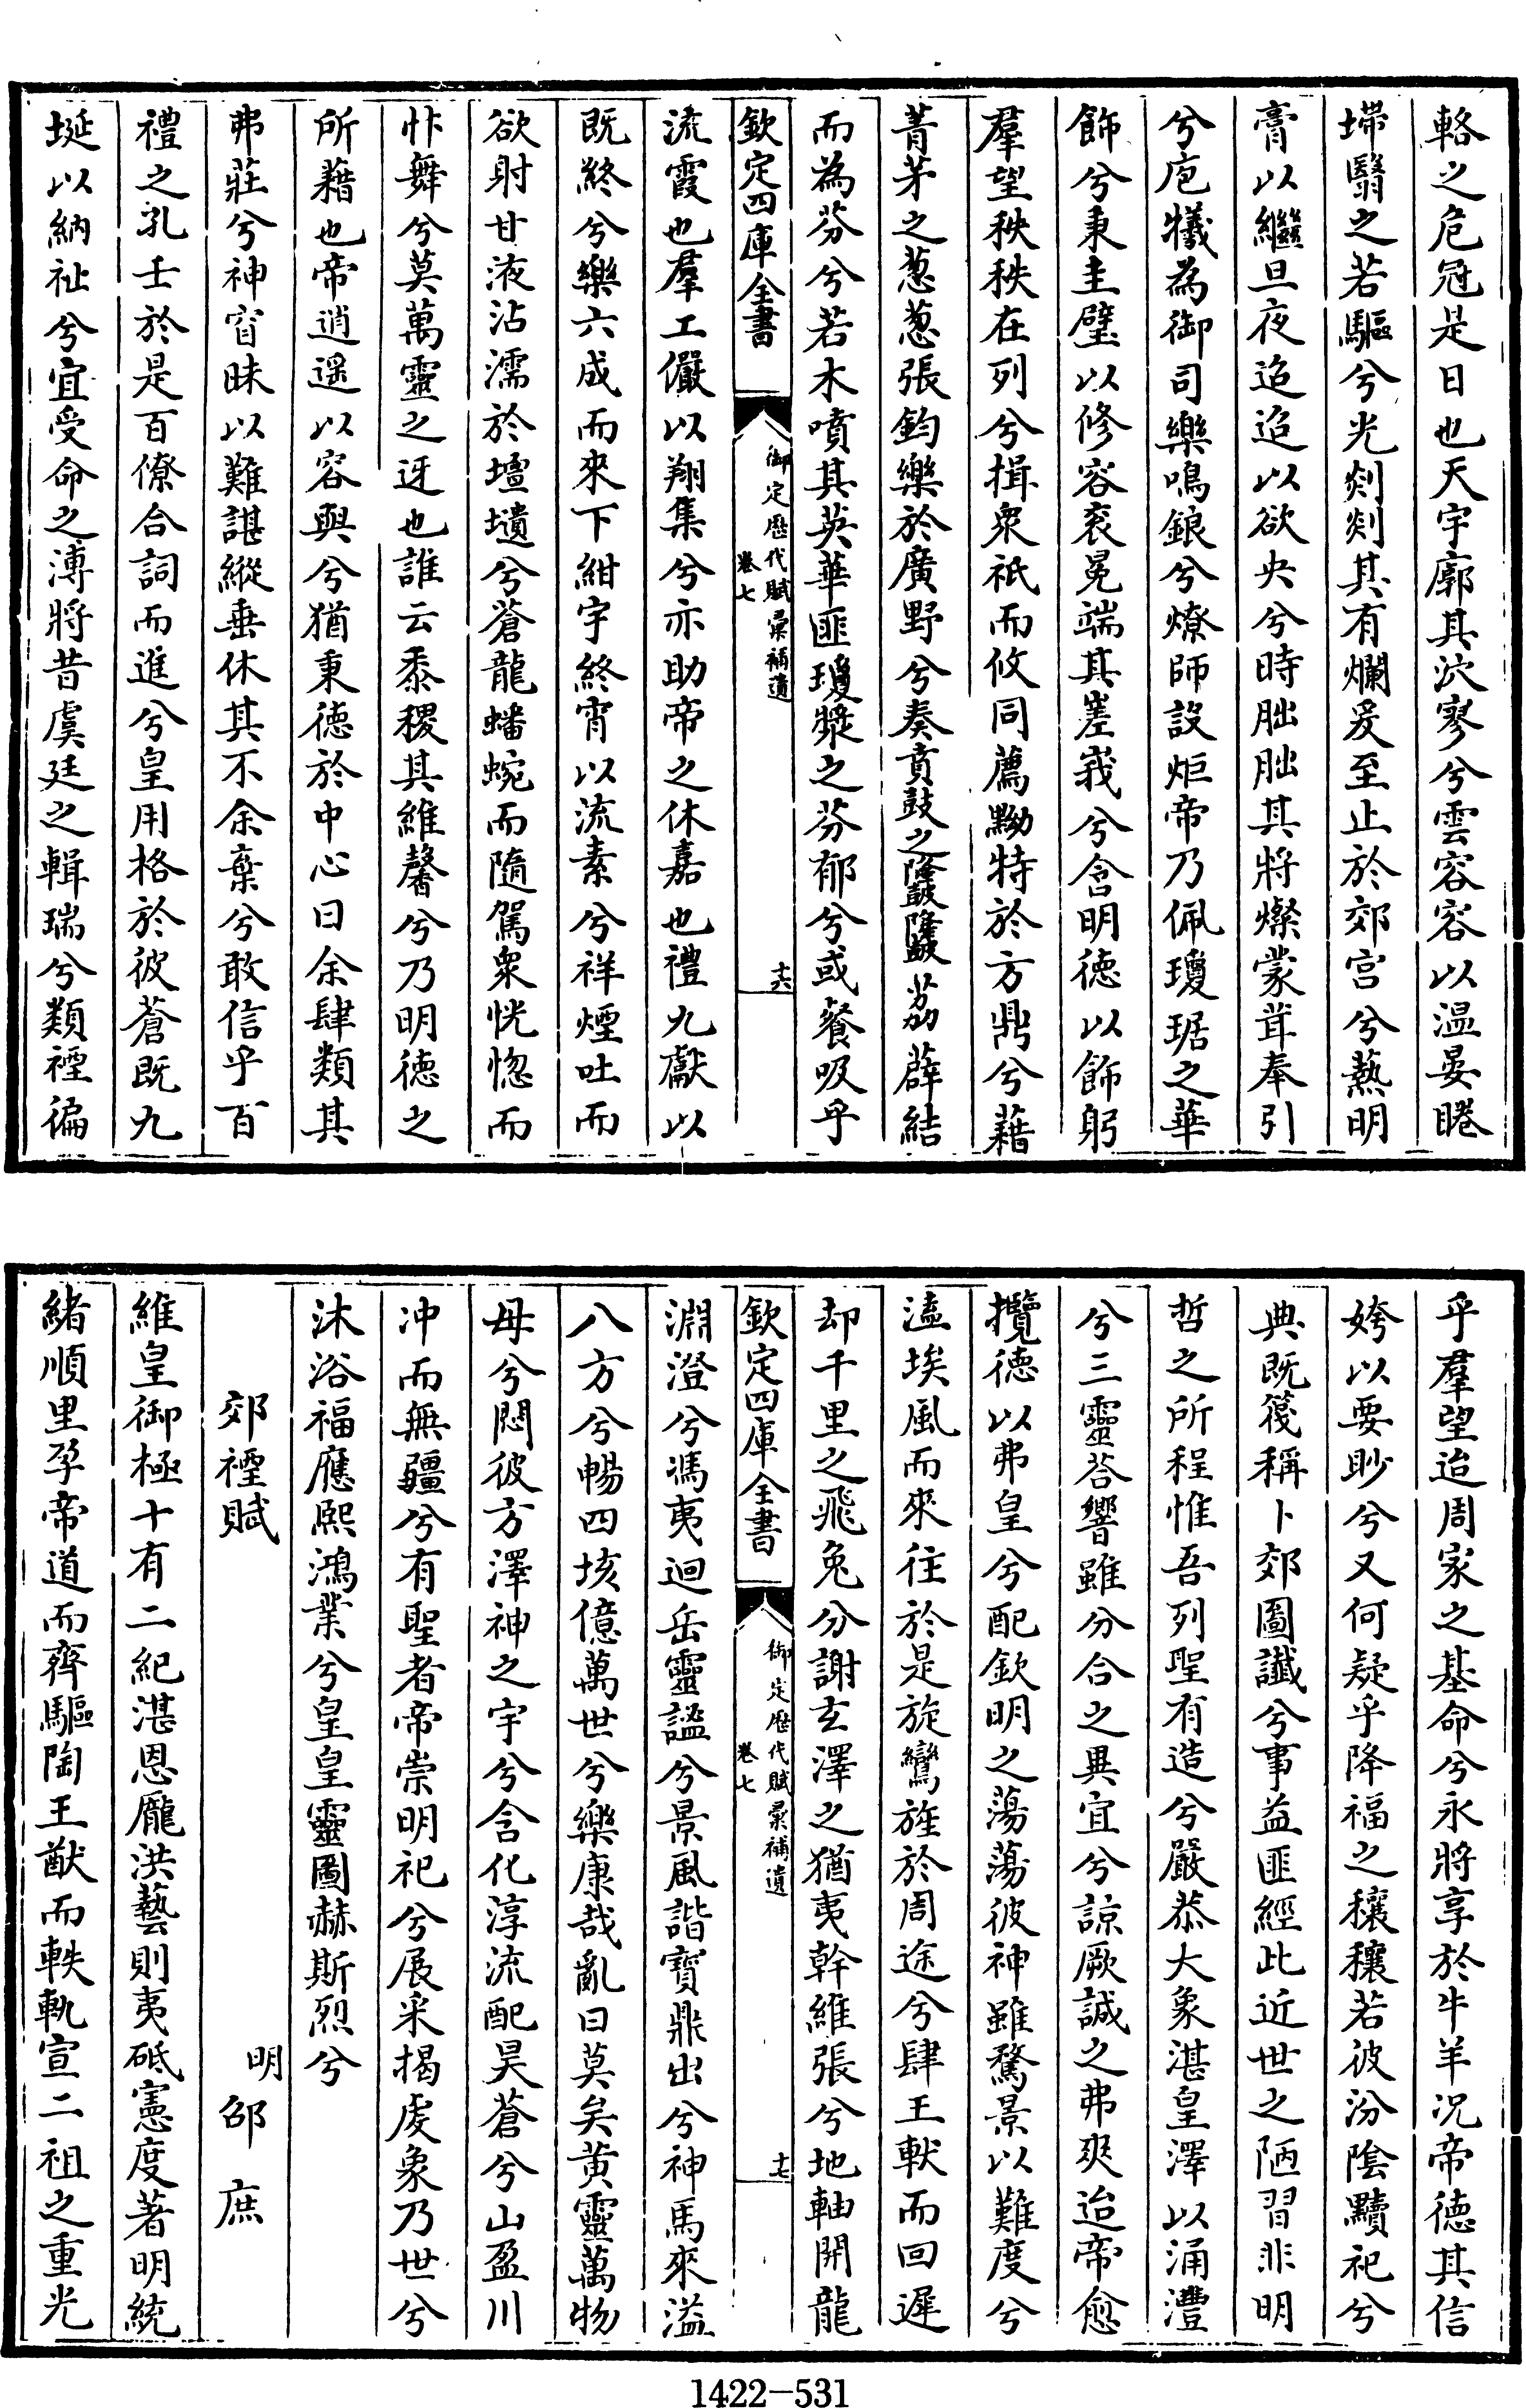 輅之危冠是日也天宇廓其泬寥兮雲容容以温晏睠
埽翳之若驅兮光剡剡其有爛爰至止於郊宫兮爇明
膏以繼旦夜迢迢以欲央兮時朏朏其將燦蒙茸奉引
兮庖犧為御司樂鳴鋃兮燎師設炬帝乃佩瓊琚之華
飾兮秉圭璧以修容衮冕端其嵳峩兮含明徳以飾躬
羣望秧秩在列兮揖衆祇而攸同薦黝特於方鼎兮藉
菁茅之葱葱張鈞樂於廣野兮奏賁鼓之隆鼓隆鼓荔薜結
而為芬兮若木噴其英華匪瓊漿之芬郁兮或餐吸乎
欽定四庫全書
御定歴代賦彙補遺
卷七
十六
流霞也羣工儼以翔集兮亦助帝之休嘉也禮九獻以
既終兮樂六成而來下紺宇終宵以流素兮祥煙吐而
欲射甘液沾濡於壇壝兮蒼龍蟠蜿而隨駕衆恍惚而
忭舞兮莫萬靈之迓也誰云黍稷其維馨兮乃明徳之
所藉也帝逍遥以容與兮猶秉徳於中心曰余肆類其
弗莊兮神窅昧以難諶縱垂休其不余棄兮敢信乎百
禮之孔壬於是百僚合詞而進兮皇用格於彼蒼既九
埏以納祉兮宜受命之溥將昔虞廷之輯瑞兮類禋徧
乎羣望迨周家之基命兮永將享於牛羊况帝徳其信
姱以要眇兮又何疑乎降福之穰穰若彼汾陰黷祀兮
典既筏稱卜郊圖讖兮事益匪經此近世之陋習非明
哲之所程惟吾列聖有造兮嚴恭大象湛皇澤以涌灃
兮三靈荅響雖分合之異宜兮諒厥誠之弗爽迨帝愈
攬徳以弗皇兮配欽明之蕩蕩彼神雖騖景以難度兮
溘埃風而來往於是旋鸞旌於周途兮肆王軑而回遲
却千里之飛兔分謝玄澤之猶夷幹維張兮地軸開龍
欽定四庫全書
御定歴代賦彙補遺
卷七
十七
淵澄兮馮夷迴岳靈謐兮景風諧寳鼎出兮神馬來溢
八方兮暢四垓億萬世兮樂康哉亂曰莫矣黄靈萬物
母兮閟彼方澤神之宇兮含化淳流配昊蒼兮山盈川
冲而無疆兮有聖者帝崇明祀兮展采揭虔象乃世兮
沐浴福應熙鴻業兮皇皇靈圖赫斯烈兮
郊禋賦
明邵庶
維皇御極十有二紀湛恩厖洪藝則夷砥憲度著明統
緒順里孕帝道而齊驅陶王猷而軼軌宣二祖之重光
1422-531